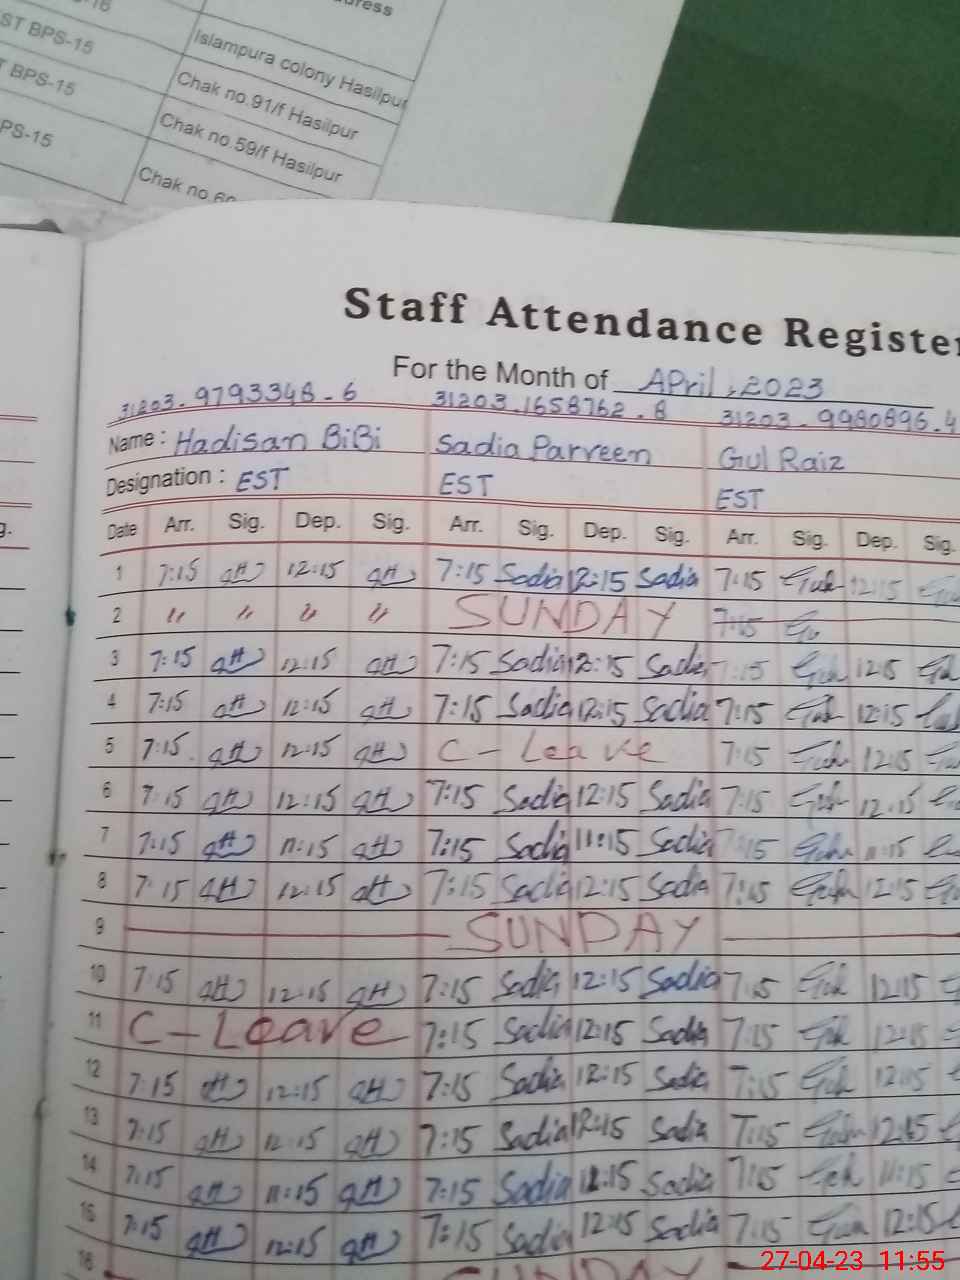 ST BPS-15 Islampura colony Hasilpur
BPS-15 Chak no.91/f Hasilpur
PS-15 Chak no.59/f Hasilpur
Chak no
Staff Attendance Register
For the Month of April, 2023
31203.9793348-6 31203.1658762.8 31203.9980896.4
Name : Hadisan BiBi Sadia Parveen Gul Raiz
Designation : EST EST EST
Date Arr. Sig. Dep. Sig. Arr. Sig. Dep. Sig. Arr. Sig. Dep. Sig.
1 7:15 12:15 7:15 Sadia 12:15 Sadia 7:15 12:15
2 " " " " SUNDAY 7:15
3 7:15 12:15 7:15 Sadia 12:15 Sadia 7:15 12:15
4 7:15 12:15 7:15 Sadia 12:15 Sadia 7:15 12:15
5 7:15 12:15 C-Leave 7:15 12:15
6 7:15 12:15 7:15 Sadia 12:15 Sadia 7:15 12:15
7 7:15 11:15 7:15 Sadia 11:15 Sadia 7:15 11:15
8 7:15 12:15 7:15 Sadia 12:15 Sadia 7:15 12:15
9 SUNDAY
10 7:15 12:15 7:15 Sadia 12:15 Sadia 7:15 12:15
11 C-Leave 7:15 Sadia 12:15 Sadia 7:15 12:15
12 7:15 12:15 7:15 Sadia 12:15 Sadia 7:15 12:15
13 7:15 12:15 7:15 Sadia 12:15 Sadia 7:15 12:15
14 7:15 11:15 7:15 Sadia Sadia 7:15 11:15
15 7:15 12:15 7:15 Sadia 12:15 Sadia 7:15 12:15
16 SUNDAY
27-04-23 11:55